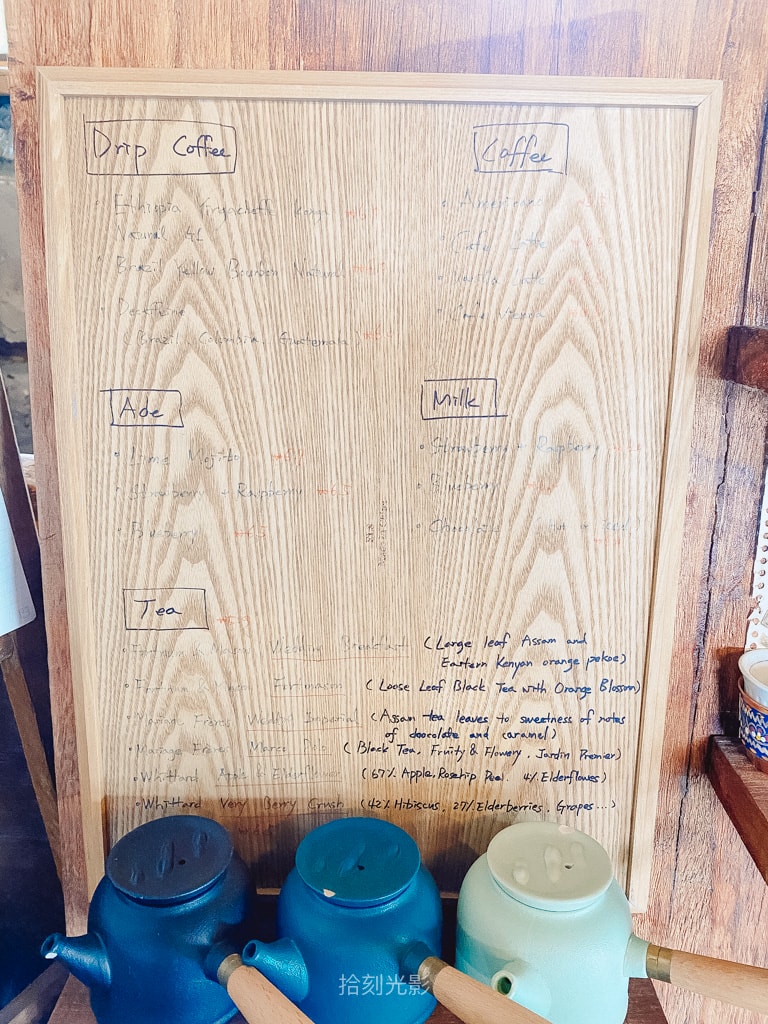 Drip Coffee
Ethiopia Yirgacheffe
Natural G1
Brazil Yellow Bourbon Natural
Decaffeine
(Brazil, Colombia, Guatemala)
Coffee
Americano
Cafe Latte
Vanilla Latte
Ade
Lime Mojito
Strawberry + Raspberry ₩6.5
Blueberry ₩6.5
Milk
Strawberry + Raspberry
Blueberry
Tea
Wedding Breakfast (Large leaf Assam and
Eastern Kenyan orange pekoe)
Fortmason (Loose Leaf Black Tea with Orange Blossom)
Mariage Frères Wedding Imperial (Assam tea leaves to sweetness of notes
of chocolate and caramel)
Mariage Frères Marco Polo (Black Tea, Fruity & Flowery, Jardin Premier)
Whittard Apple & Elderflower (67% Apple, Rosehip Peel, 4% Elderflowes)
Whittard Very Berry Crush (42% Hibiscus, 27% Elderberries, Grapes...)
拾刻光影